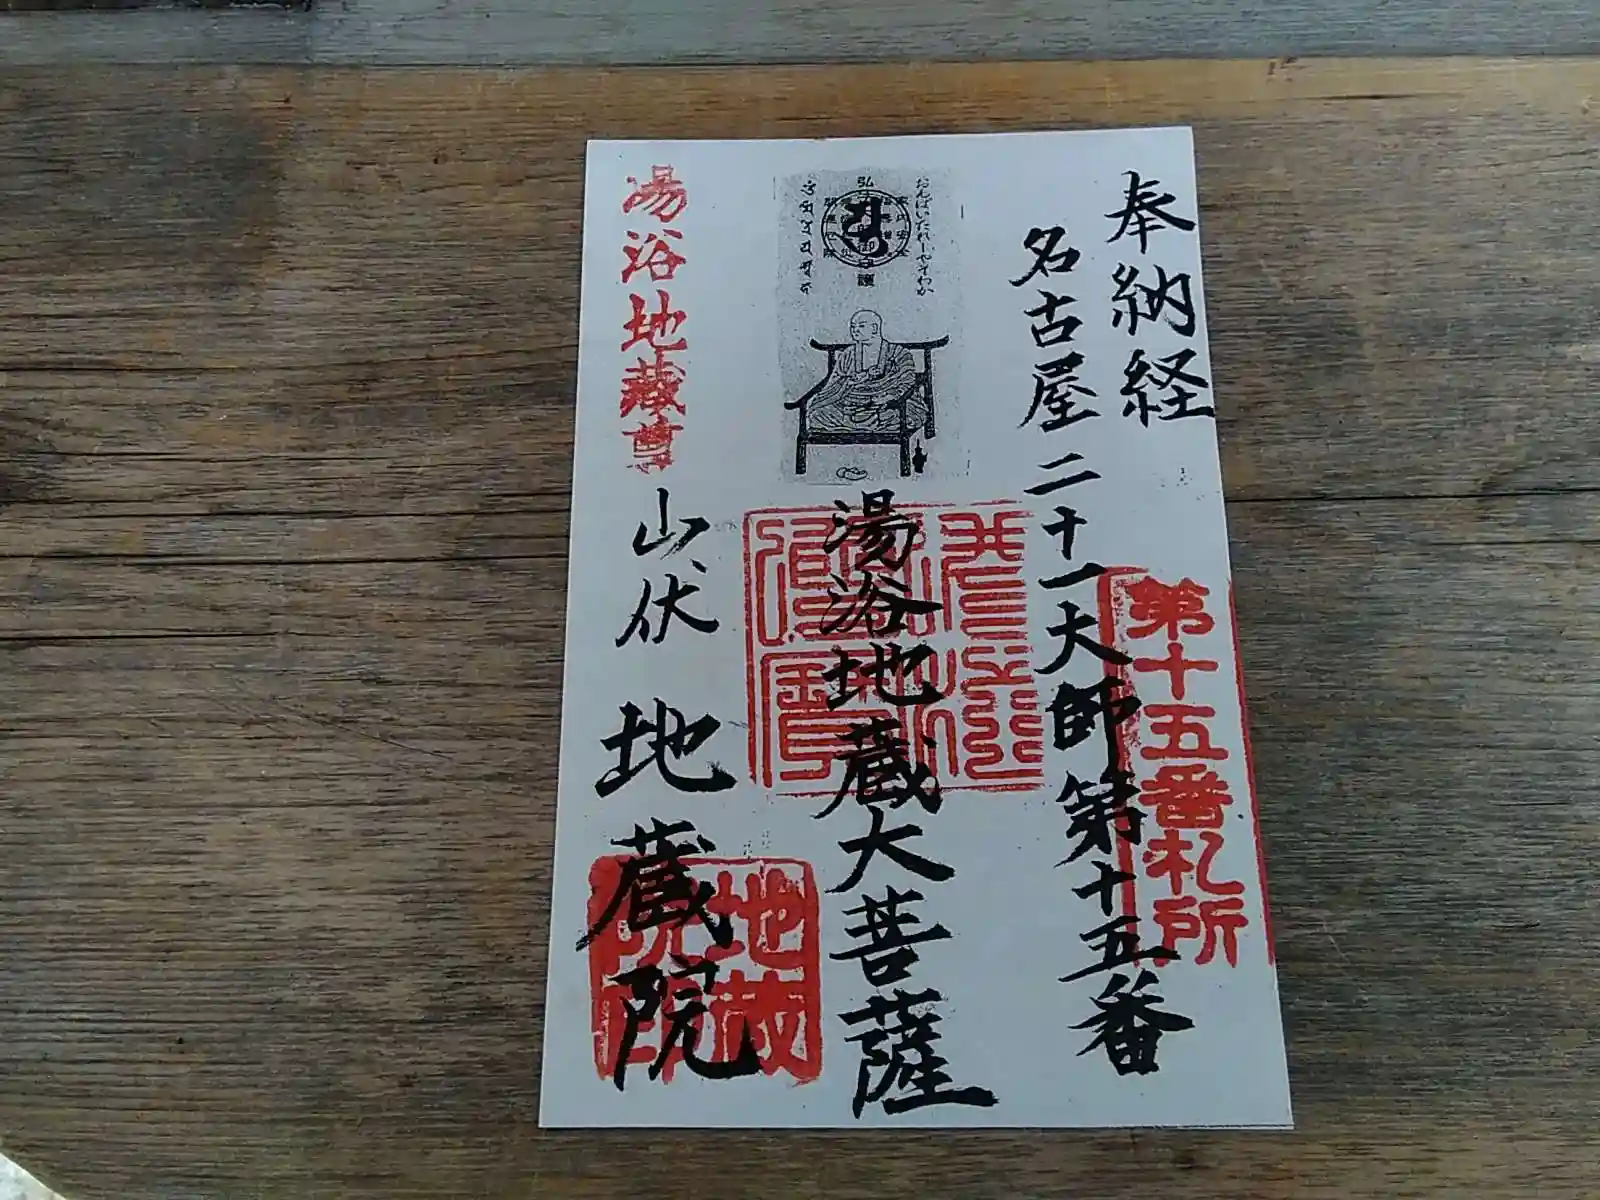 奉納経
名古屋二十一大師第十五番
第十五番札所
おんばいたれーやそわか
湯浴地蔵大菩薩
湯浴地蔵尊
山伏地蔵院
地蔵院